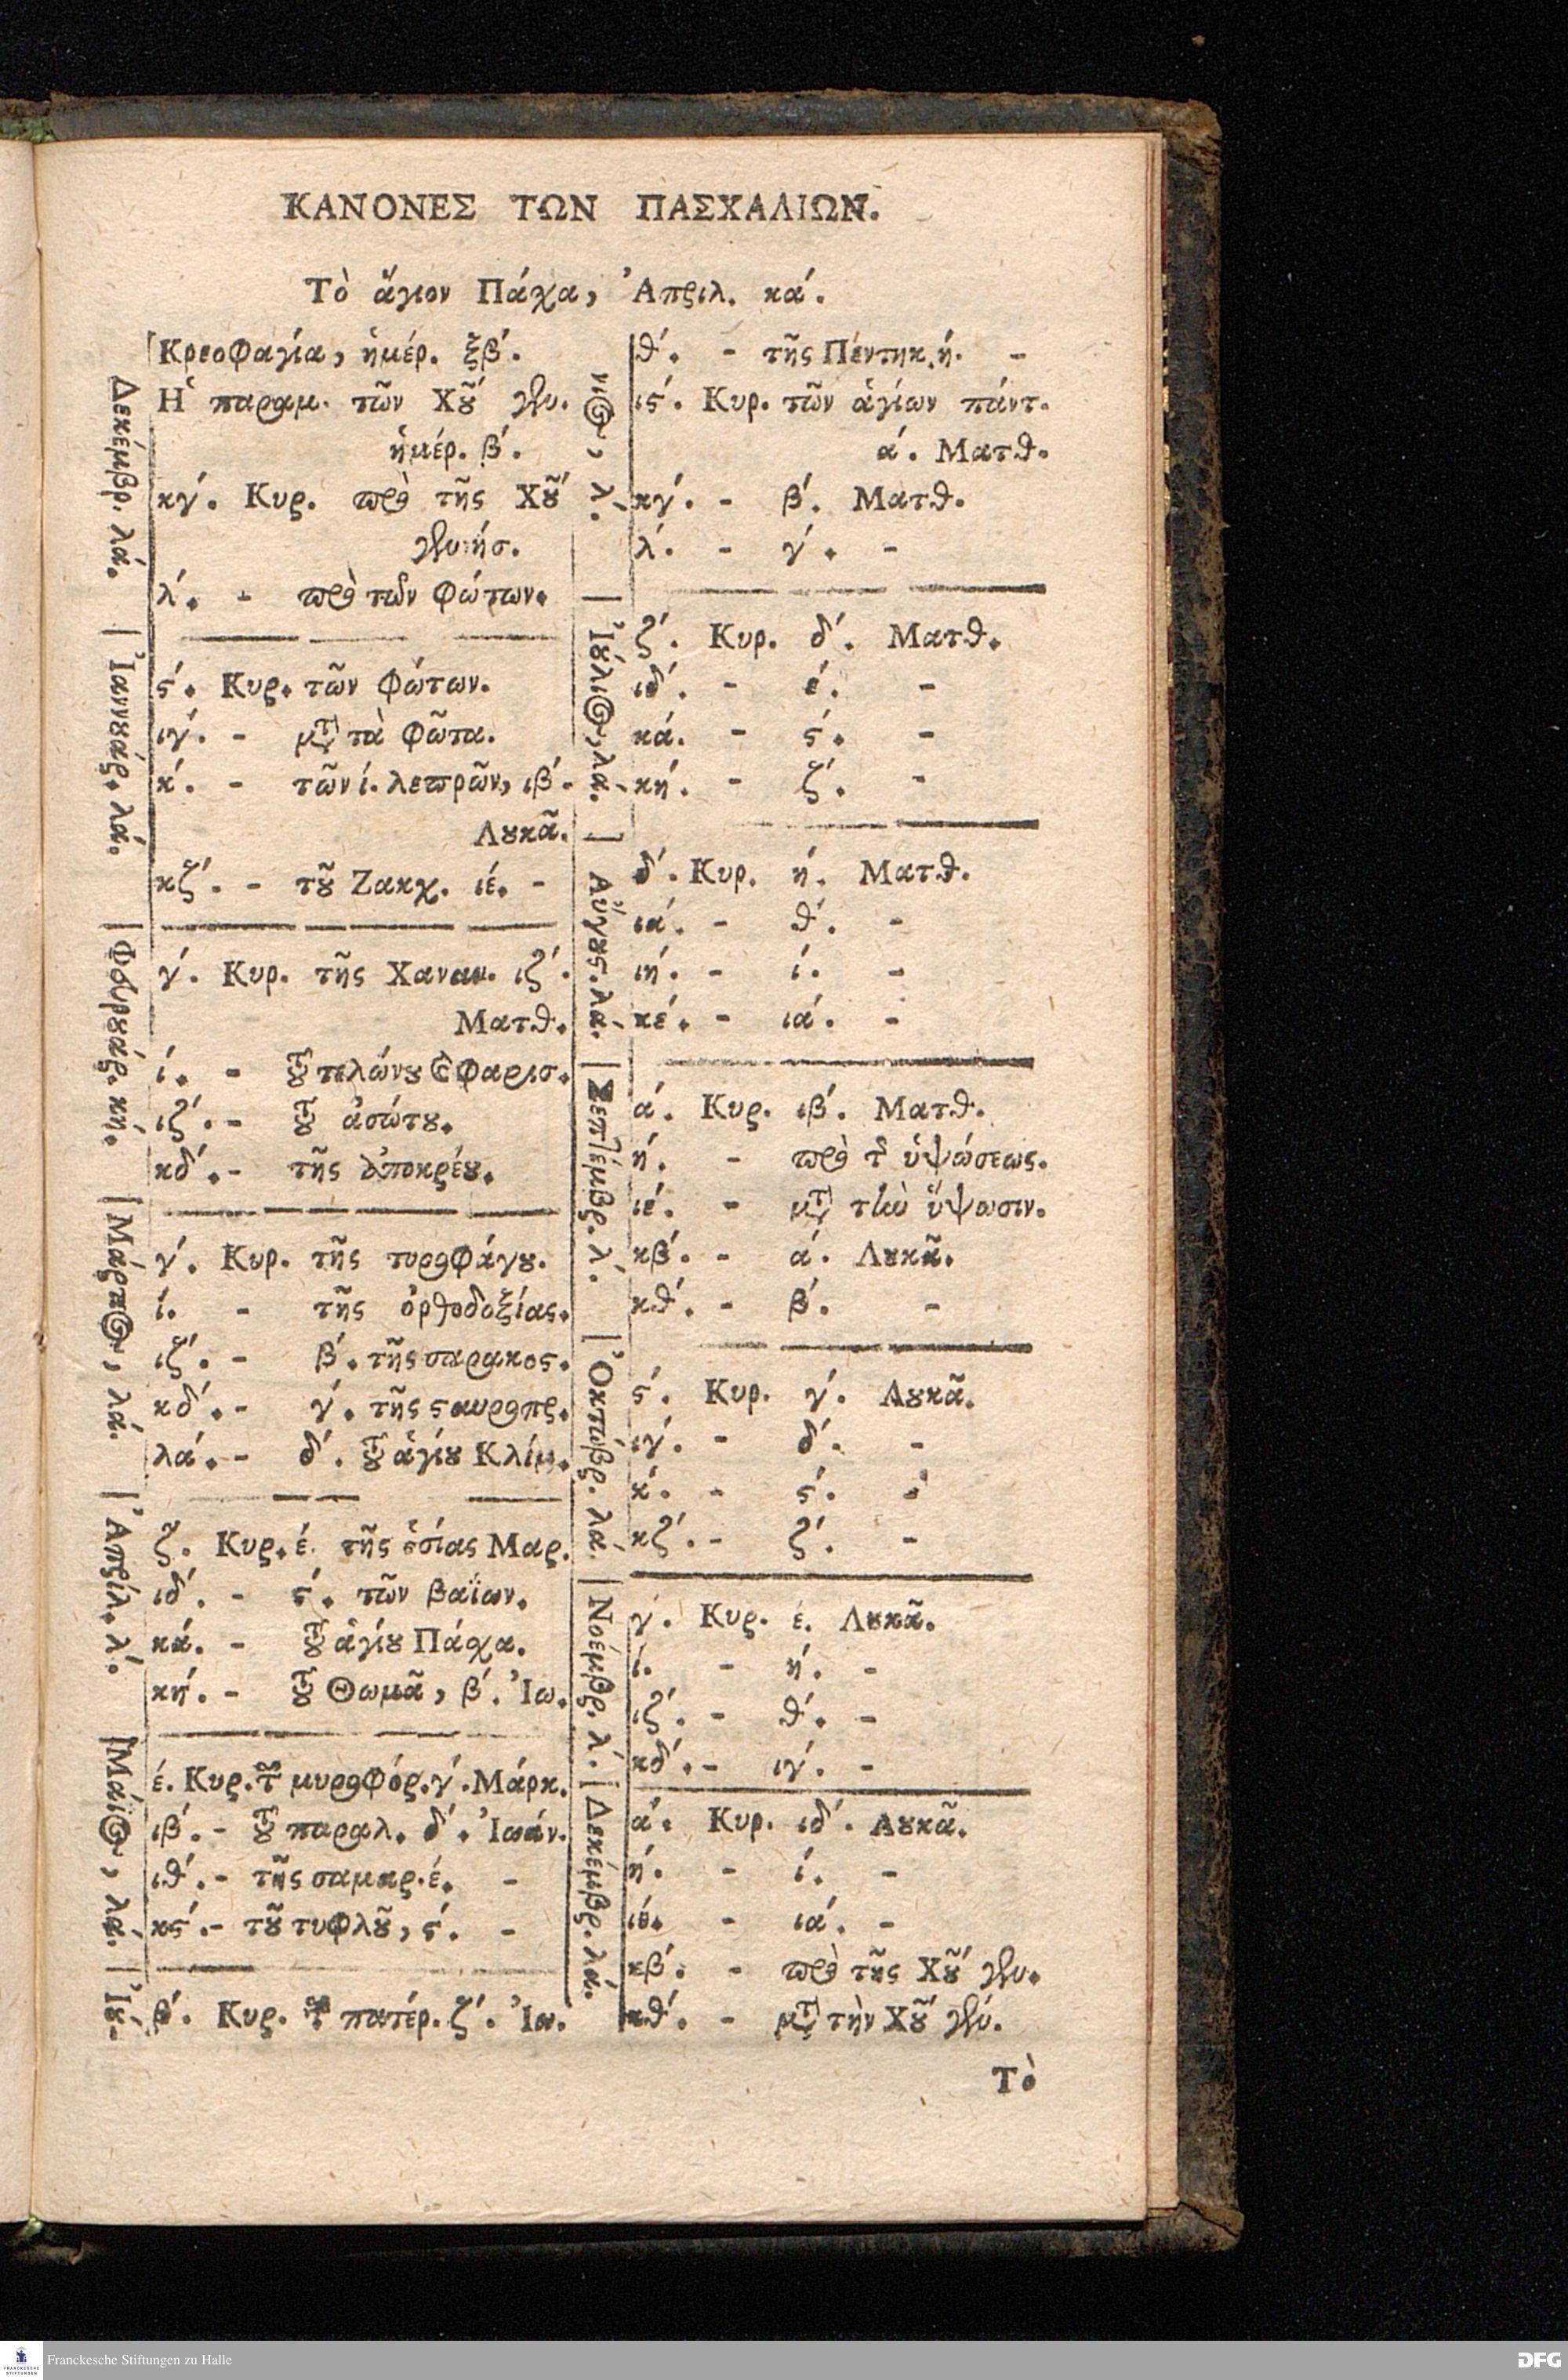 ΚΑΝΟΝΕΣ ΤΩΝ ΠΑΣΧΑΛΙΩΝ.
Τὸ ἅγιον Πάχα, Ἀπριλ. κα΄.
Δεκέμβρ. λά.
Κρεοφαγία, ἡμέρ. ξβ΄.
Ἡ παραμ. τῶν Χȣ͂ γεν.
ἡμέρ. β΄.
κγ΄. Κυρ. πρὸ τῆς Χȣ͂
γεννήσ.
λ΄. - πρὸ τῶν Φώτων.
Ἰαννȣάρ. λά.
ϛ΄. Κυρ. τῶν Φώτων.
ιγ΄. - μετὰ τὰ Φῶτα.
κ΄. - τῶν ί. λεπρῶν, ιβ΄.
Λȣκᾶ.
κζ΄. - τȣ͂ Ζακχ. ιέ. -
Φευρȣάρ. κή.
γ΄. Κυρ. τῆς Χαναν. ιζ΄.
Ματθ.
ί. - τȣ͂ τελώνȣ καὶ Φαρισ.
ιζ΄. - τȣ͂ ἀσώτȣ.
κδ΄. - τῆς ἀποκρέȣ.
Μάρτιος, λά.
γ΄. Κυρ. τῆς τυροφάγȣ.
ί. - τῆς ὀρθοδοξίας.
ιζ΄. - β΄. τῆς σαρακοϛ.
κδ΄. - γ΄. τῆς ϛαυροπρ.
λά. - δ΄. τȣ͂ ἁγίȣ Κλίμ.
Ἀπρίλ. λ΄.
ζ΄. Κυρ. έ. τῆς ὁσίας Μαρ.
ιδ΄. - ϛ΄. τῶν βαΐων.
κά. - τȣ͂ ἁγίȣ Πάχα.
κή. - τȣ͂ Θωμᾶ, β΄. Ἰω.
Μάϊος, λά.
έ. Κυρ. τῶν μυροφόρ. γ΄. Μάρκ.
ιβ΄. - τȣ͂ παραλ. δ΄. Ἰωάν.
ιθ΄. - τῆς σαμαρ. έ. -
κϛ΄. - τȣ͂ τυφλȣ͂, ϛ΄. -
Ἰȣ́-
β΄. Κυρ. τῶν πατέρ. ζ΄. Ἰω.
νιος, λ΄.
θ΄. - τῆς Πεντηκ. ή. -
ιϛ΄. Κυρ. τῶν ἁγίων πάντ.
ά. Ματθ.
κγ΄. - β΄. Ματθ.
λ΄. - γ΄. -
Ἰȣ́λιος, λά.
ζ΄. Κυρ. δ΄. Ματθ.
ιδ΄. - έ. -
κά. - ϛ΄. -
κή. - ζ΄. -
Αὔγȣϛ. λά.
δ΄. Κυρ. ή. Ματθ.
ιά. - θ΄. -
ιή. - ί. -
κέ. - ιά. -
Σεπτέμβρ. λ΄.
ά. Κυρ. ιβ΄. Ματθ.
ή. - πρὸ τῆς ὑψώσεως.
ιέ. - μετὰ τὴν ὕψωσιν.
κβ΄. - ά. Λȣκᾶ.
κθ΄. - β΄. -
Ὀκτώβρ. λά.
ϛ΄. Κυρ. γ΄. Λȣκᾶ.
ιγ΄. - δ΄. -
κ΄. - ϛ΄. -
κζ΄. - ζ΄. -
Νοέμβρ. λ΄.
γ΄. Κυρ. έ. Λȣκᾶ.
ί. - ή. -
ιζ΄. - θ΄. -
κδ΄. - ιγ΄. -
Δεκέμβρ. λά.
ά. Κυρ. ιδ΄. Λȣκᾶ.
ή. - ί. -
ιέ. - ιά. -
κβ΄. - πρὸ τῆς Χȣ͂ γεν.
κθ΄. - μετὰ τὴν Χȣ͂ γέν.
Τὸ
FRANCKESCHE STIFTUNGEN
Franckesche Stiftungen zu Halle
DFG